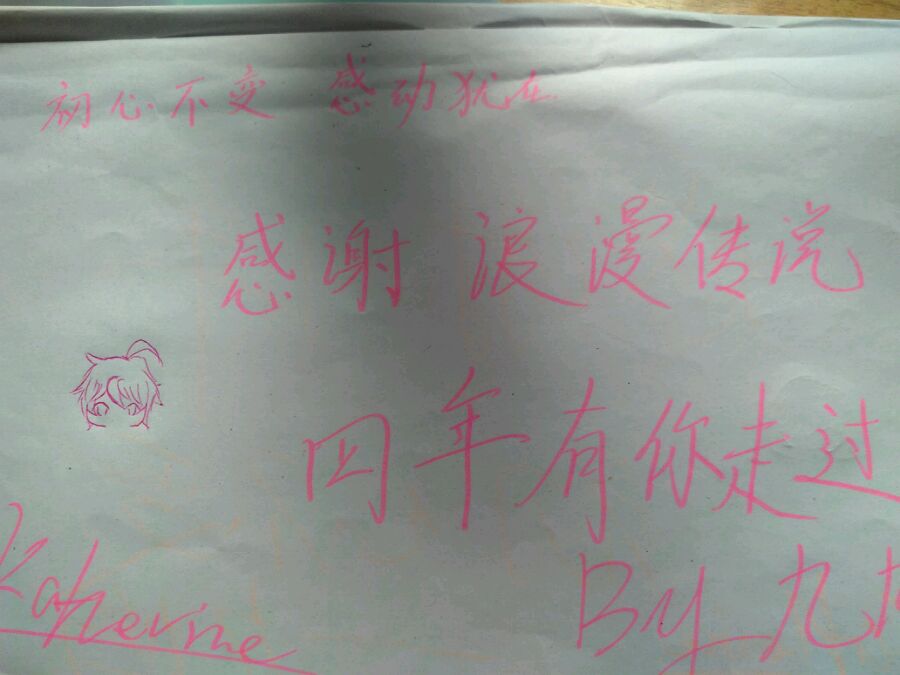 初心不变 感动犹在
感谢 浪漫传说
四年有你走过
Katherine
By 九